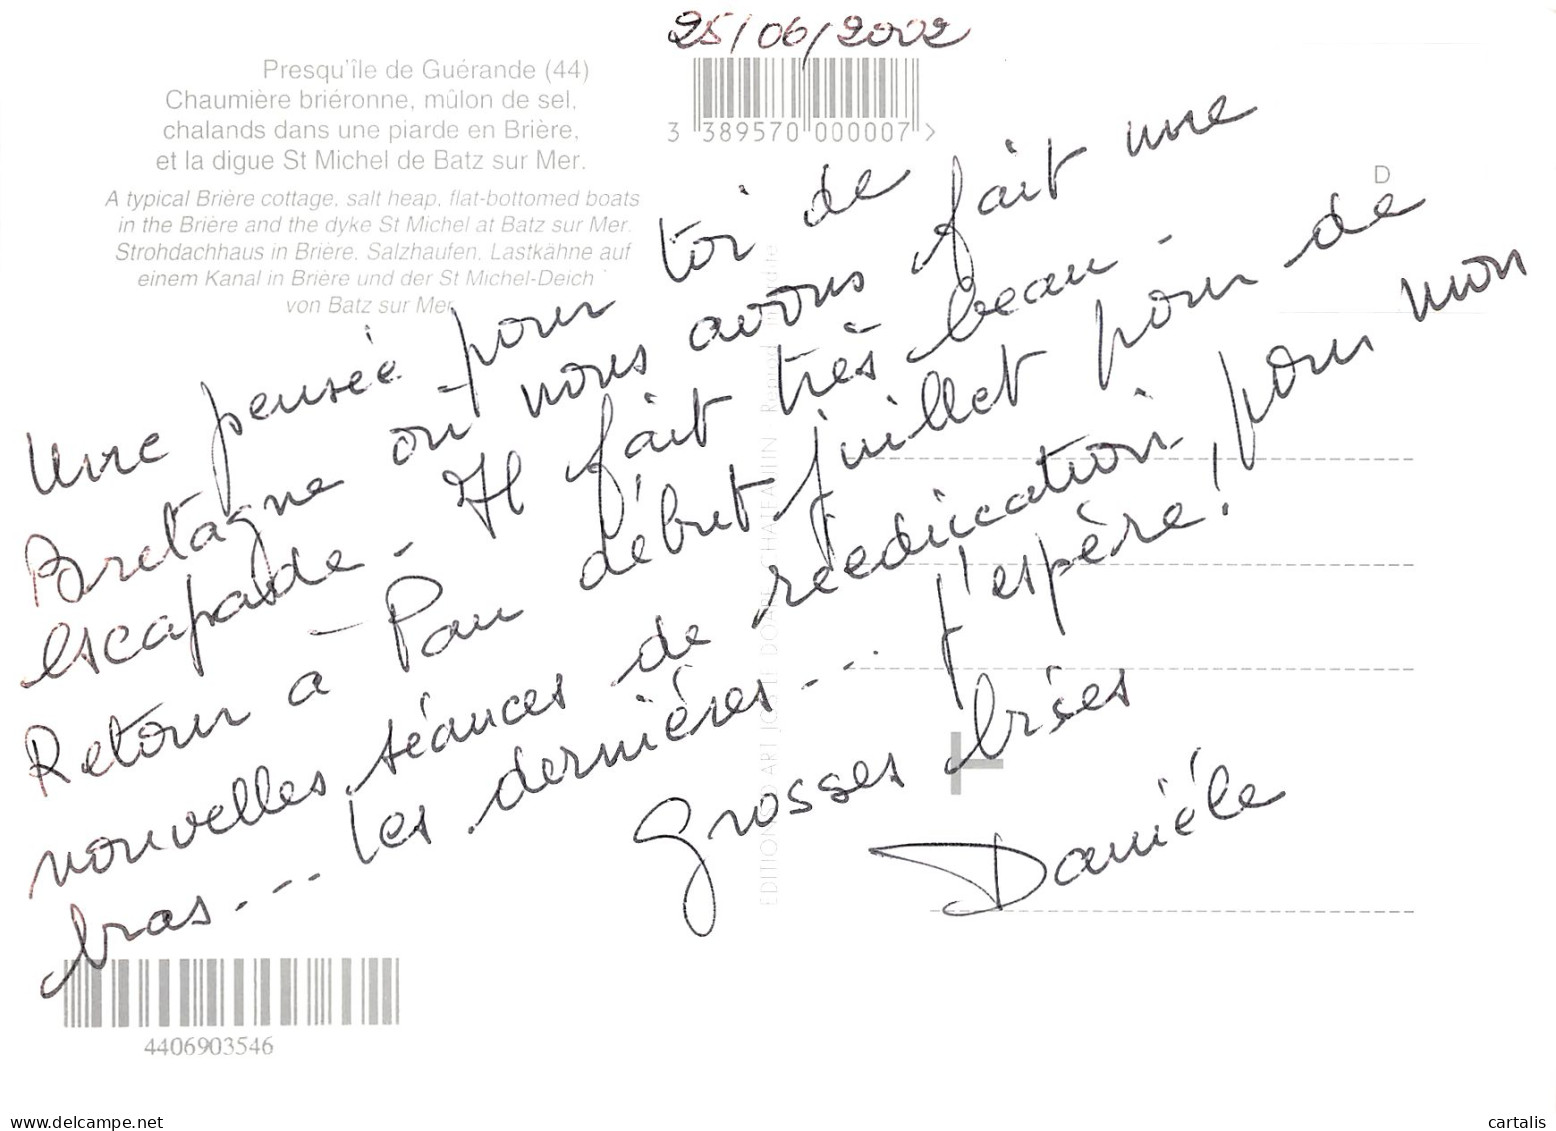 25/06/2002
Presqu'île de Guérande (44)
Chaumière briéronne, mûlon de sel,
chalands dans une piarde en Brière,
et la digue St Michel de Batz sur Mer.
A typical Brière cottage, salt heap, flat-bottomed boats
in the Brière and the dyke St Michel at Batz sur Mer.
Strohdachhaus in Brière. Salzhaufen. Lastkähne auf
einem Kanal in Brière und der St Michel-Deich
von Batz sur Mer.
3 389570 000007 >
D
Une pensée pour toi de
Bretagne où nous avons fait une
escapade - Il fait très beau -
Retour à Pau début juillet pour de
nouvelles séances de rééducation, pour mon
bras... les dernières... j'espère!
Grosses bises
Danièle
EDITIONS D'ART JOS LE DOARÉ CHATEAULIN
4406903546
www.delcampe.net
cartalis